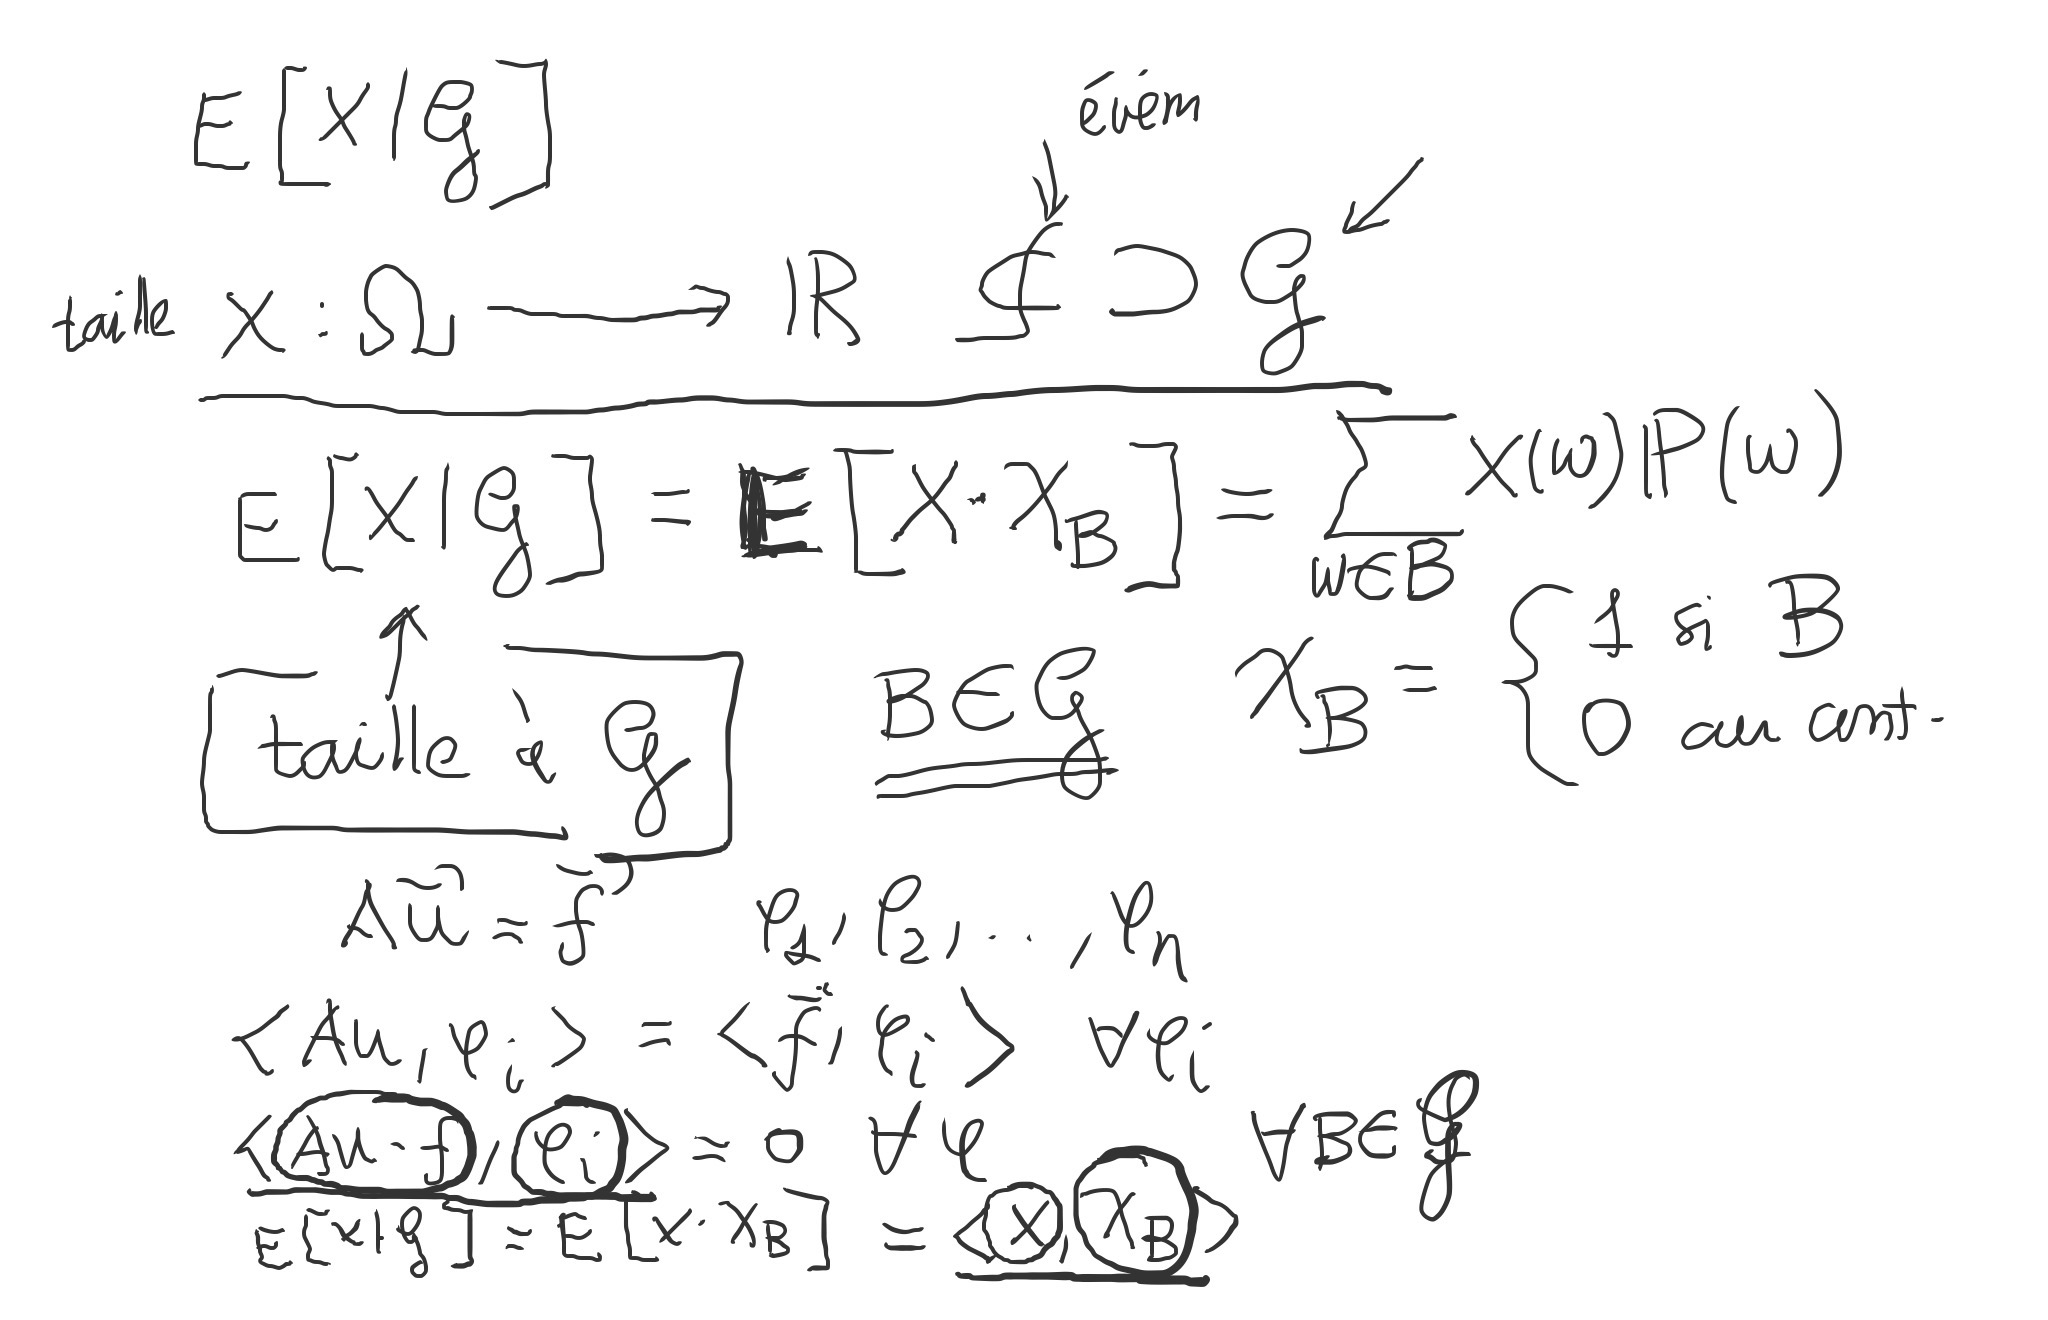 E[X|𝒢]
évém
taille X : Ω ⟶ ℝ ⊄ ⊃ 𝒢
E[X|𝒢] = E[X·χ_B] = ∑_{ω∈B} X(ω)ℙ(ω)
taille à 𝒢
B∈𝒢
χ_B = { 1 si B
0 au cont.
Au⃗ = f⃗ φ₁, φ₂, ..., φₙ
<Au, φᵢ> = <f⃗, φᵢ> ∀φᵢ
<Au-f, φᵢ> = 0 ∀φ ∀B∈𝒢
E[X|𝒢] = E[X·χ_B] = <X, χ_B>